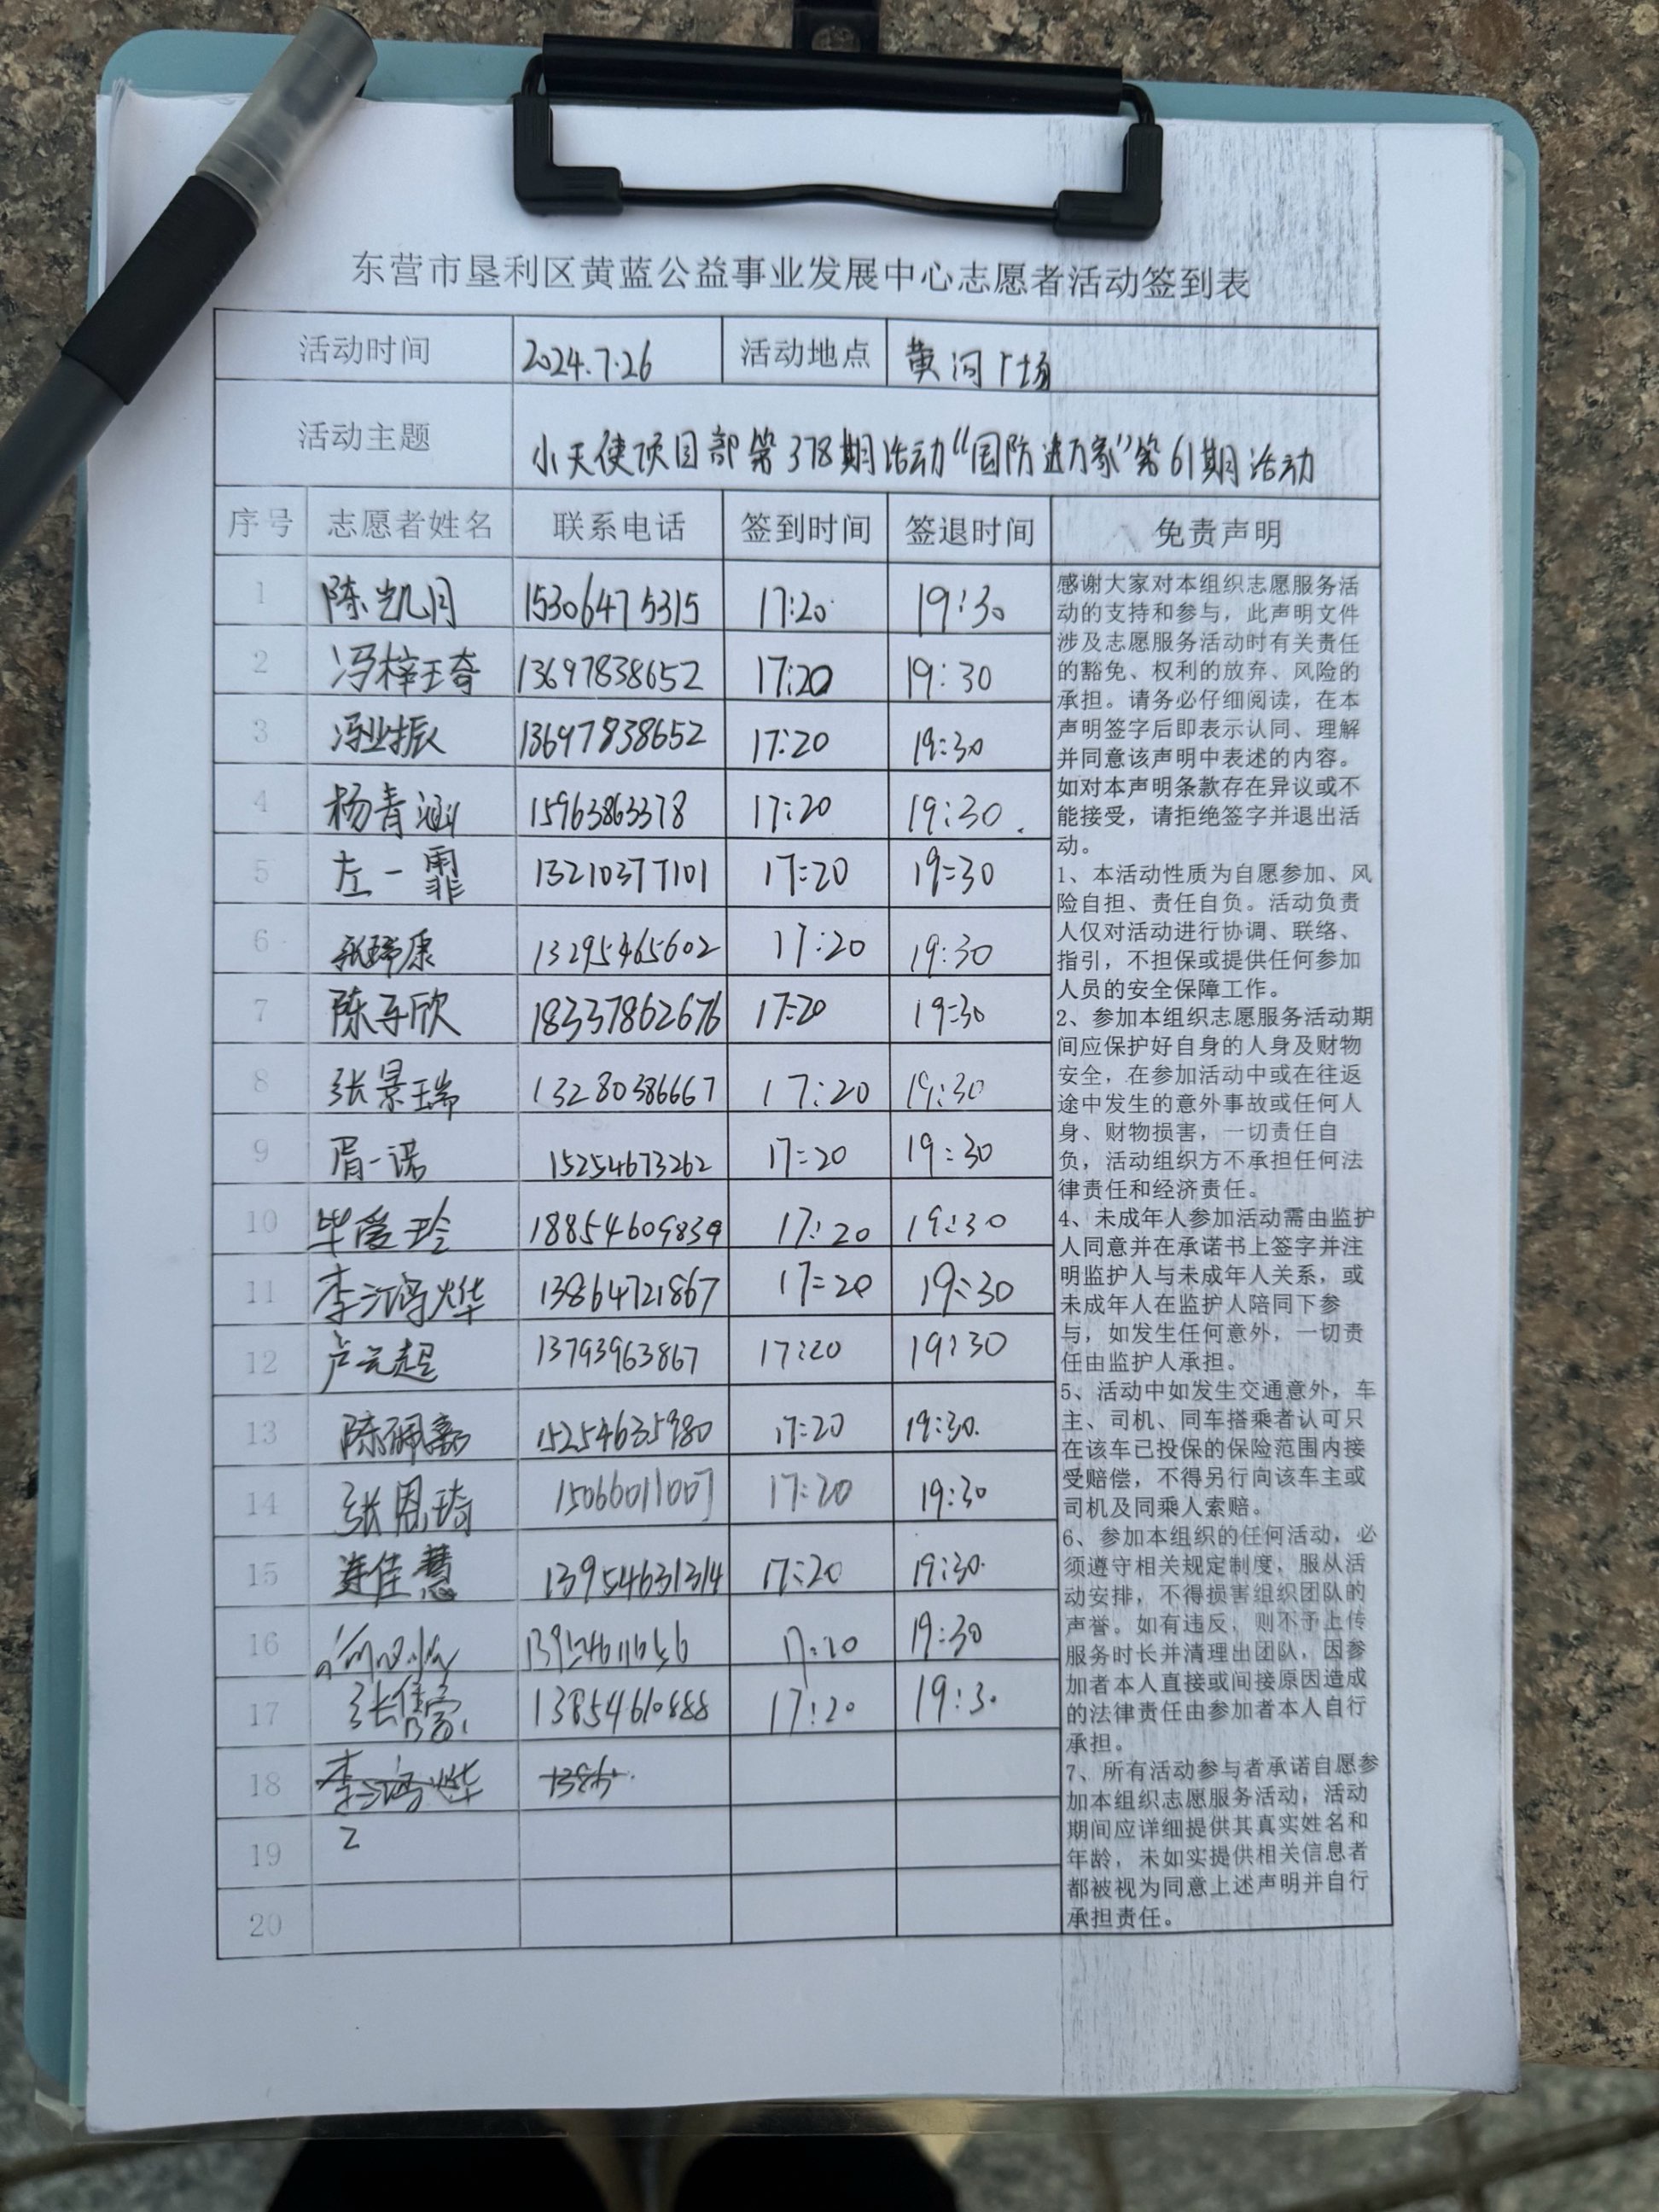 东营市垦利区黄蓝公益事业发展中心志愿者活动签到表
活动时间 2024.7.26 活动地点 黄河广场
活动主题 小天使项目部第378期活动“国防进万家”第61期活动
序号 志愿者姓名 联系电话 签到时间 签退时间 免责声明
1 陈凯月 15306475315 17:20 19:30
2 冯梓琦 13697838652 17:20 19:30
3 冯业振 13697838652 17:20 19:30
4 杨青涵 15963863378 17:20 19:30
5 左一霏 13210377101 17:20 19:30
6 张瑞康 13295465602 17:20 19:30
7 陈子欣 18337862676 17:20 19:30
8 张景瑞 13280386667 17:20 19:30
9 胥一诺 15254673262 17:20 19:30
10 毕爱玲 18854609839 17:20 19:30
11 李鸿烨 13864721867 17:20 19:30
12 卢元超 13793963867 17:20 19:30
13 陈佩嘉 15254635980 17:20 19:30
14 张恩琦 15066011007 17:20 19:30
15 连佳慧 13954631314 17:20 19:30
16 17:20 19:30
17 13854610888 17:20 19:30
18 李鸿烨
19
20
感谢大家对本组织志愿服务活
动的支持和参与，此声明文件
涉及志愿服务活动时有关责任
的豁免、权利的放弃、风险的
承担。请务必仔细阅读，在本
声明签字后即表示认同、理解
并同意该声明中表述的内容。
如对本声明条款存在异议或不
能接受，请拒绝签字并退出活
动。
1、本活动性质为自愿参加、风
险自担、责任自负。活动负责
人仅对活动进行协调、联络、
指引，不担保或提供任何参加
人员的安全保障工作。
2、参加本组织志愿服务活动期
间应保护好自身的人身及财物
安全，在参加活动中或在往返
途中发生的意外事故或任何人
身、财物损害，一切责任自
负，活动组织方不承担任何法
律责任和经济责任。
4、未成年人参加活动需由监护
人同意并在承诺书上签字并注
明监护人与未成年人关系，或
未成年人在监护人陪同下参
与，如发生任何意外，一切责
任由监护人承担。
5、活动中如发生交通意外，车
主、司机、同车搭乘者认可只
在该车已投保的保险范围内接
受赔偿，不得另行向该车主或
司机及同乘人索赔。
6、参加本组织的任何活动，必
须遵守相关规定制度，服从活
动安排，不得损害组织团队的
声誉。如有违反，则不予上传
服务时长并清理出团队，因参
加者本人直接或间接原因造成
的法律责任由参加者本人自行
承担。
7、所有活动参与者承诺自愿参
加本组织志愿服务活动，活动
期间应详细提供其真实姓名和
年龄，未如实提供相关信息者
都被视为同意上述声明并自行
承担责任。